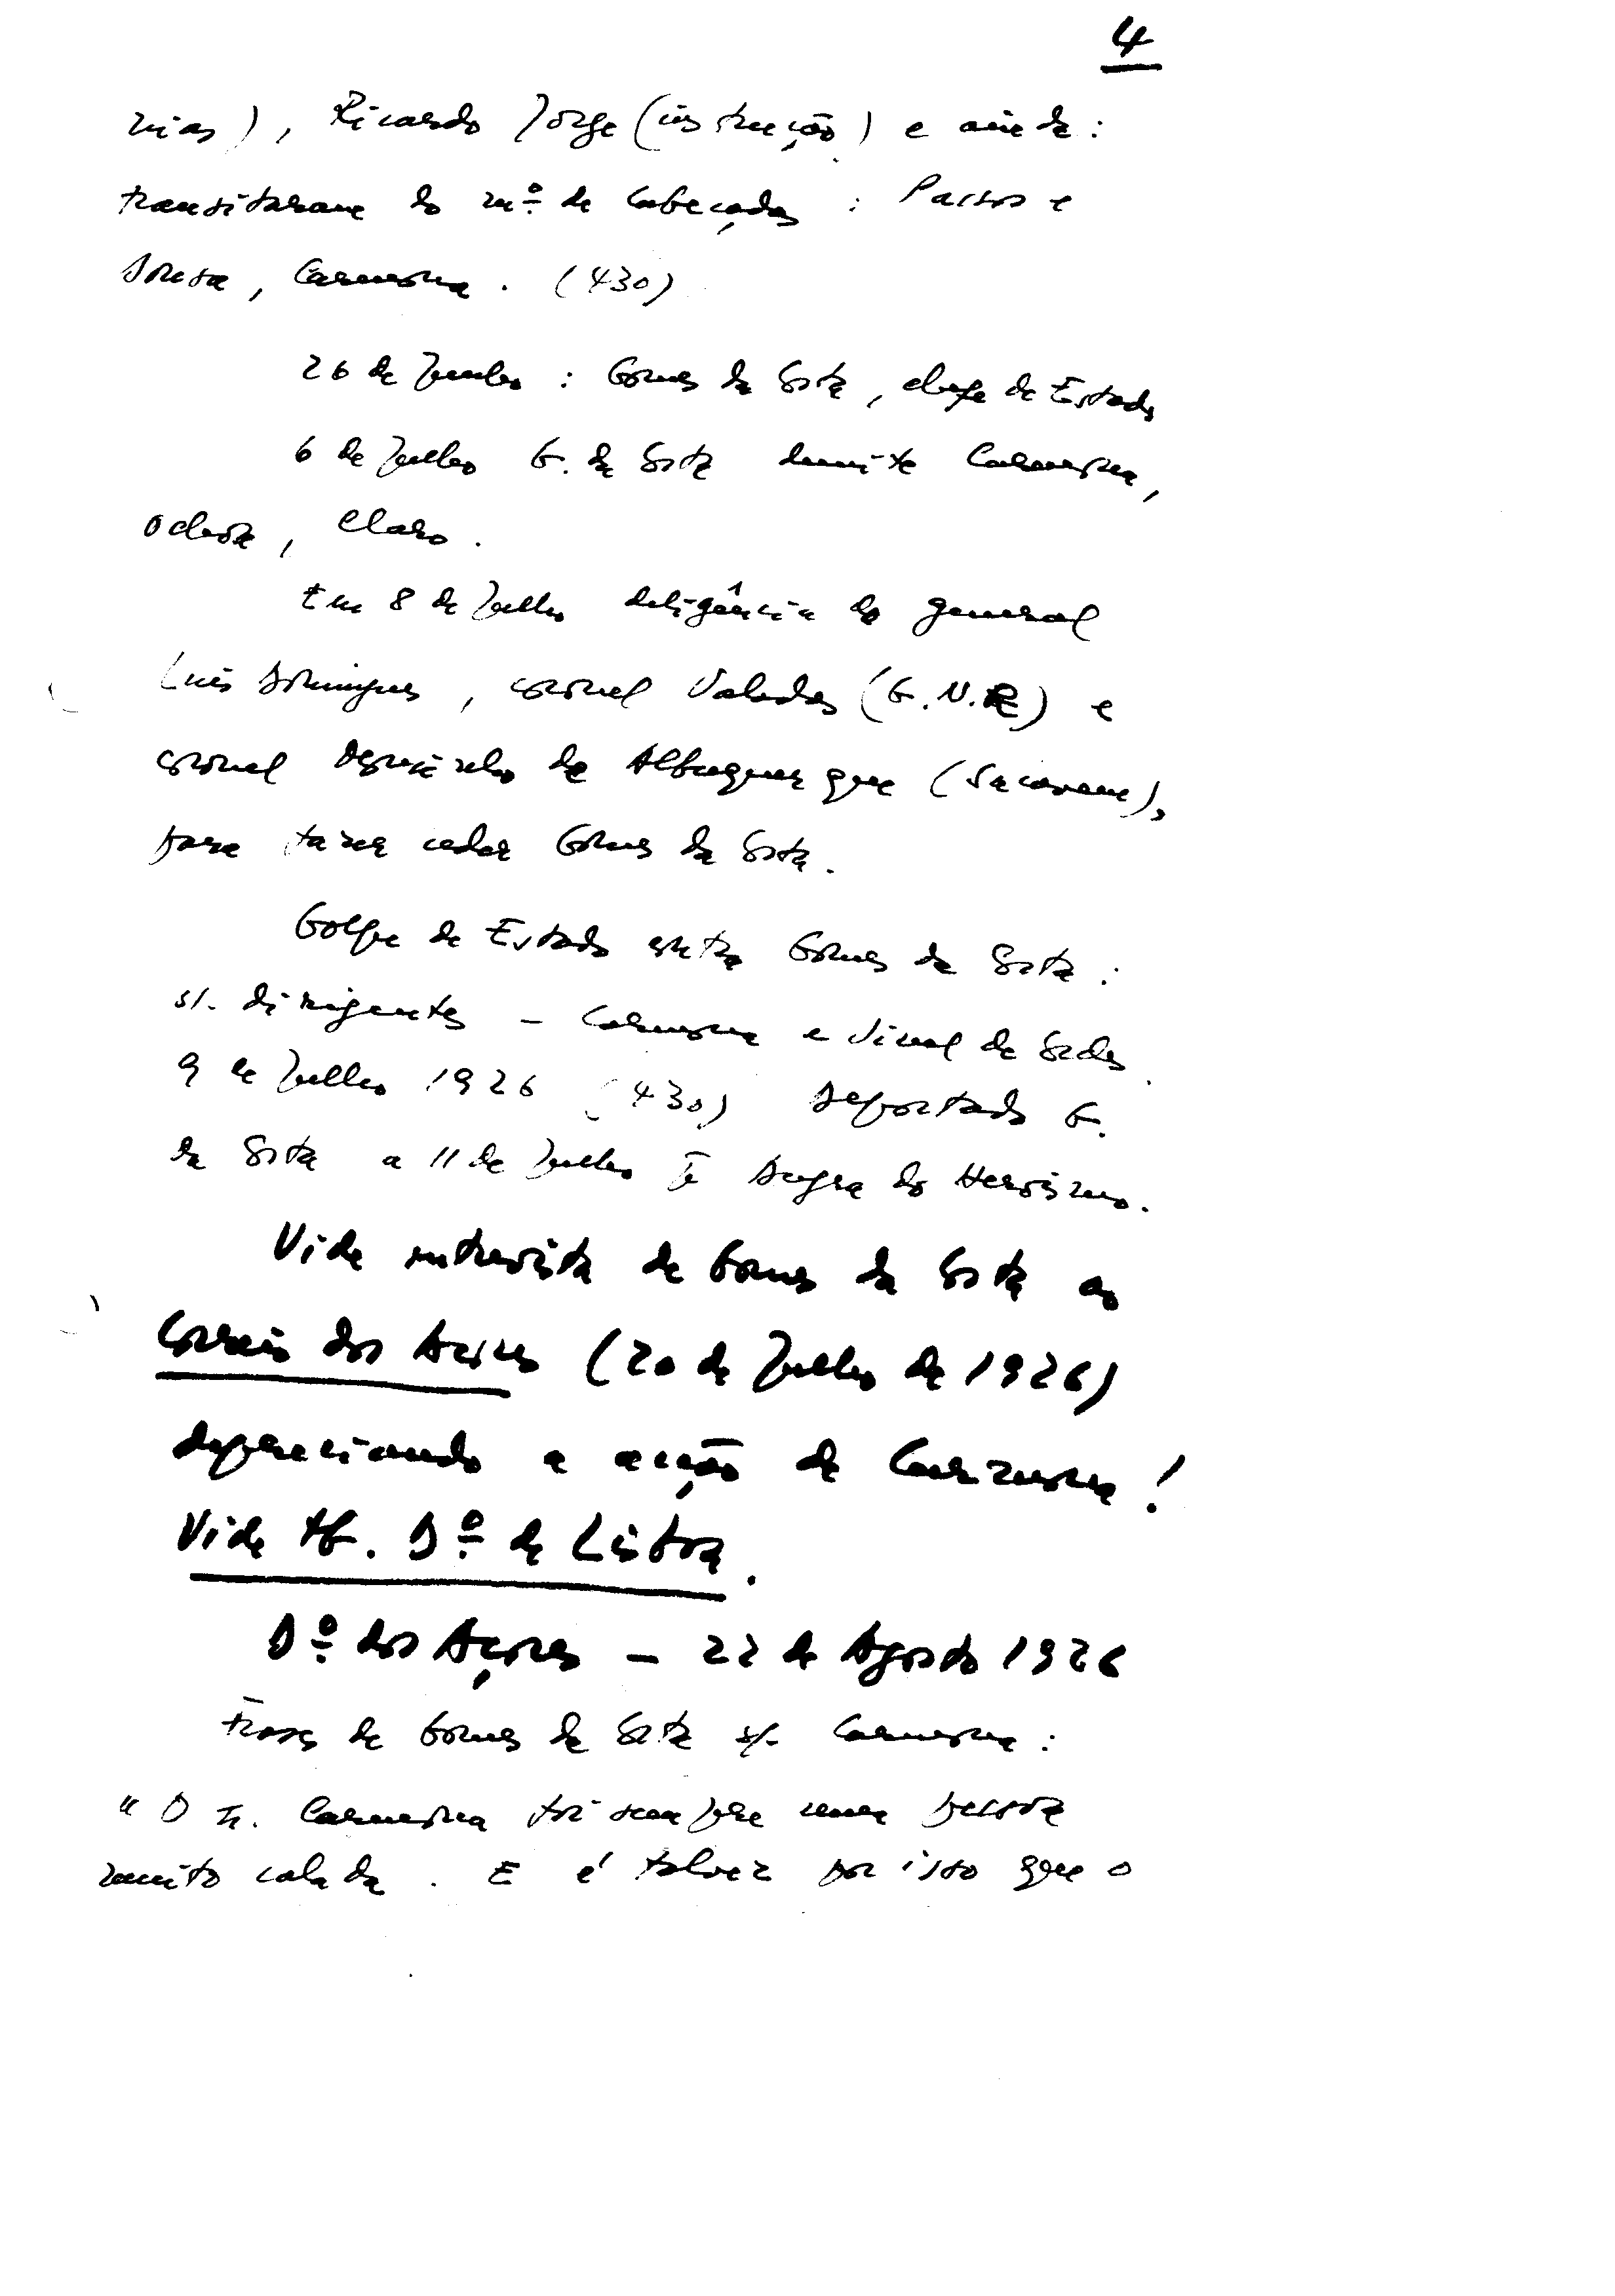 4
nias), Ricardo Jorge (instrução) e ainda:
transitaram do mº. de Cabeçadas: Passos e
Sousa, Carmona. (430)
26 de Junho: Gomes da Costa, chefe de Estado
6 de Julho G. da Costa demite Carmona,
Ochoa, Claro.
Em 8 de Julho deligência do general
Luís Domingues, coronel Valadas (G.N.R) e
coronel de Albuquerque (Sacavem),
para fazer ceder Gomes da Costa.
Golpe de Estado contra Gomes da Costa:
s/. dirigentes - Carmona e Sinel de Cordes
9 de Julho 1926 (430) Deportado G.
da Costa a 11 de Julho Angra do Heroísmo.
Vide entrevista de Gomes da Costa ao
Correio dos Açores (20 de Julho de 1926)
depreciando a acção de Carmona!
Vide tb. Dº. de Lisboa.
Dº. dos Açores - 22 de Agosto 1926
Frases de Gomes da Costa s/. Carmona:
"O Carmona foi sempre uma pessoa
muito calada. E é talvez por isso que o